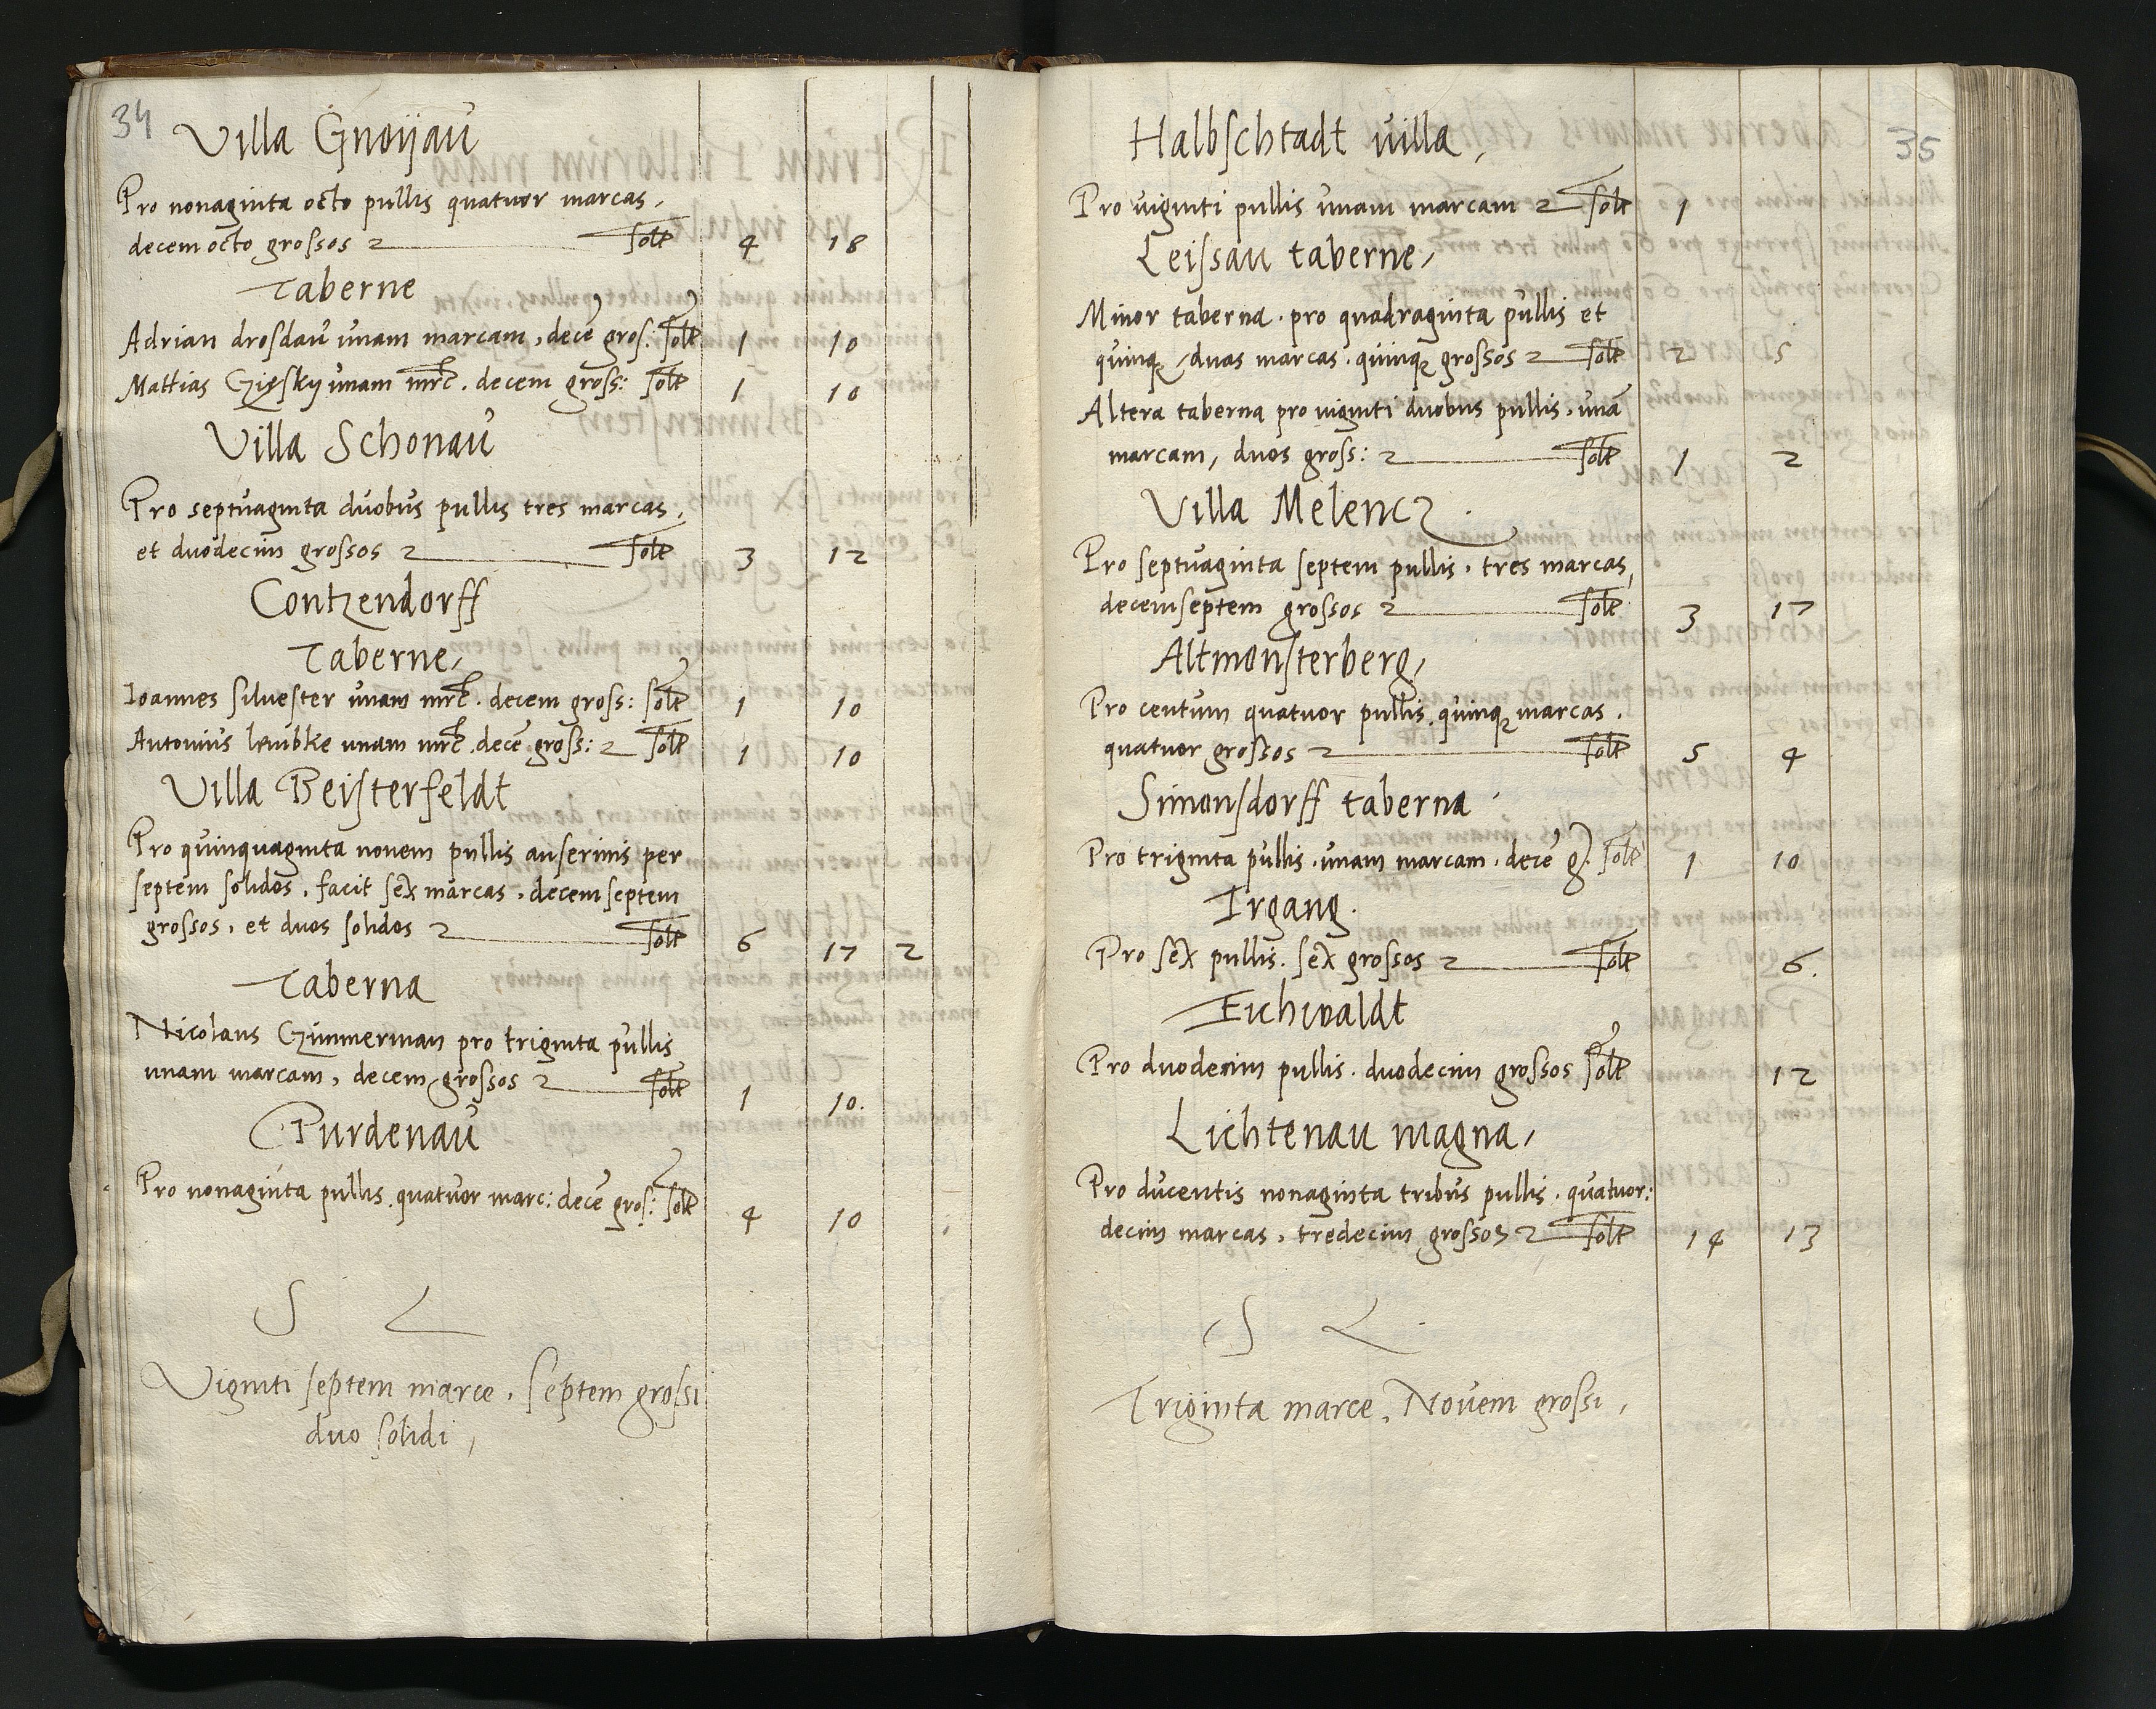 34
Villa Gnoijau
Pro nonaginta octo pullis quatuor marcas,
decem octo grossos solt 4 18
Taberne
Adrian drosdau unam marcam, decē gros: solt 1 10
Mattias unam mrc. decem gross: solt 1 10
Villa Schonau
Pro septuaginta duobus pullis tres marcas,
et duodecim grossos solt 3 12
Contzendorff
Taberne,
Ioannes silvester unam mrc. decem gross: solt 1 10
Antonius lembke unam mrc. decē gross: solt 1 10
Villa Beisterfeldt
Pro quinquaginta novem pullis anserinis per
septem solidos, facit sex marcas, decem septem
grossos, et duos solidos solt 6 17 2
Taberna
Nicolaus Czimmerman pro triginta pullis
unam marcam, decem grossos solt 1 10.
Purdenau
Pro nonaginta pullis quatuor marc: decē gros: solt 4 10
S L
Viginti septem marce, septem grossi
duo solidi,
35
Halbschtadt villa,
Pro viginti pullis unam marcam solt 1
Leissau taberne,
Minor taberna. pro quadraginta pullis et
quinq, duas marcas. quinq grossos solt 2 5
Altera taberna pro viginti duobus pullis. unā
marcam, duos gross: solt 1 2
Villa Melencz.
Pro septuaginta septem pullis. tres marcas,
decemseptem grossos solt 3 17
Altmonsterberg,
Pro centum quatuor pullis. quinq marcas.
quatuor grossos solt 5 4
Simonsdorff taberna
Pro triginta pullis. unam marcam. decē g. solt 1 10
Irgang.
Pro sex pullis. sex grossos solt 6.
Eichwaldt
Pro duodecim pullis. duodecim grossos solt 12
Lichtenau magna,
Pro ducentis nonaginta tribus pullis. quatuor:
decim marcas, tredecim grossos solt 14 13
S L.
Triginta marce, Novem grossi,